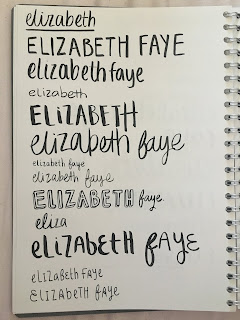 elizabeth
ELIZABETH FAYE
elizabeth faye
elizabeth
ELiZABETH
elizabeth faye
elizabeth faye
elizabeth faye
ELIZABETH faye
eliza
ELIZABETH FAYE
elizabeth faye
ELIZABETH faye